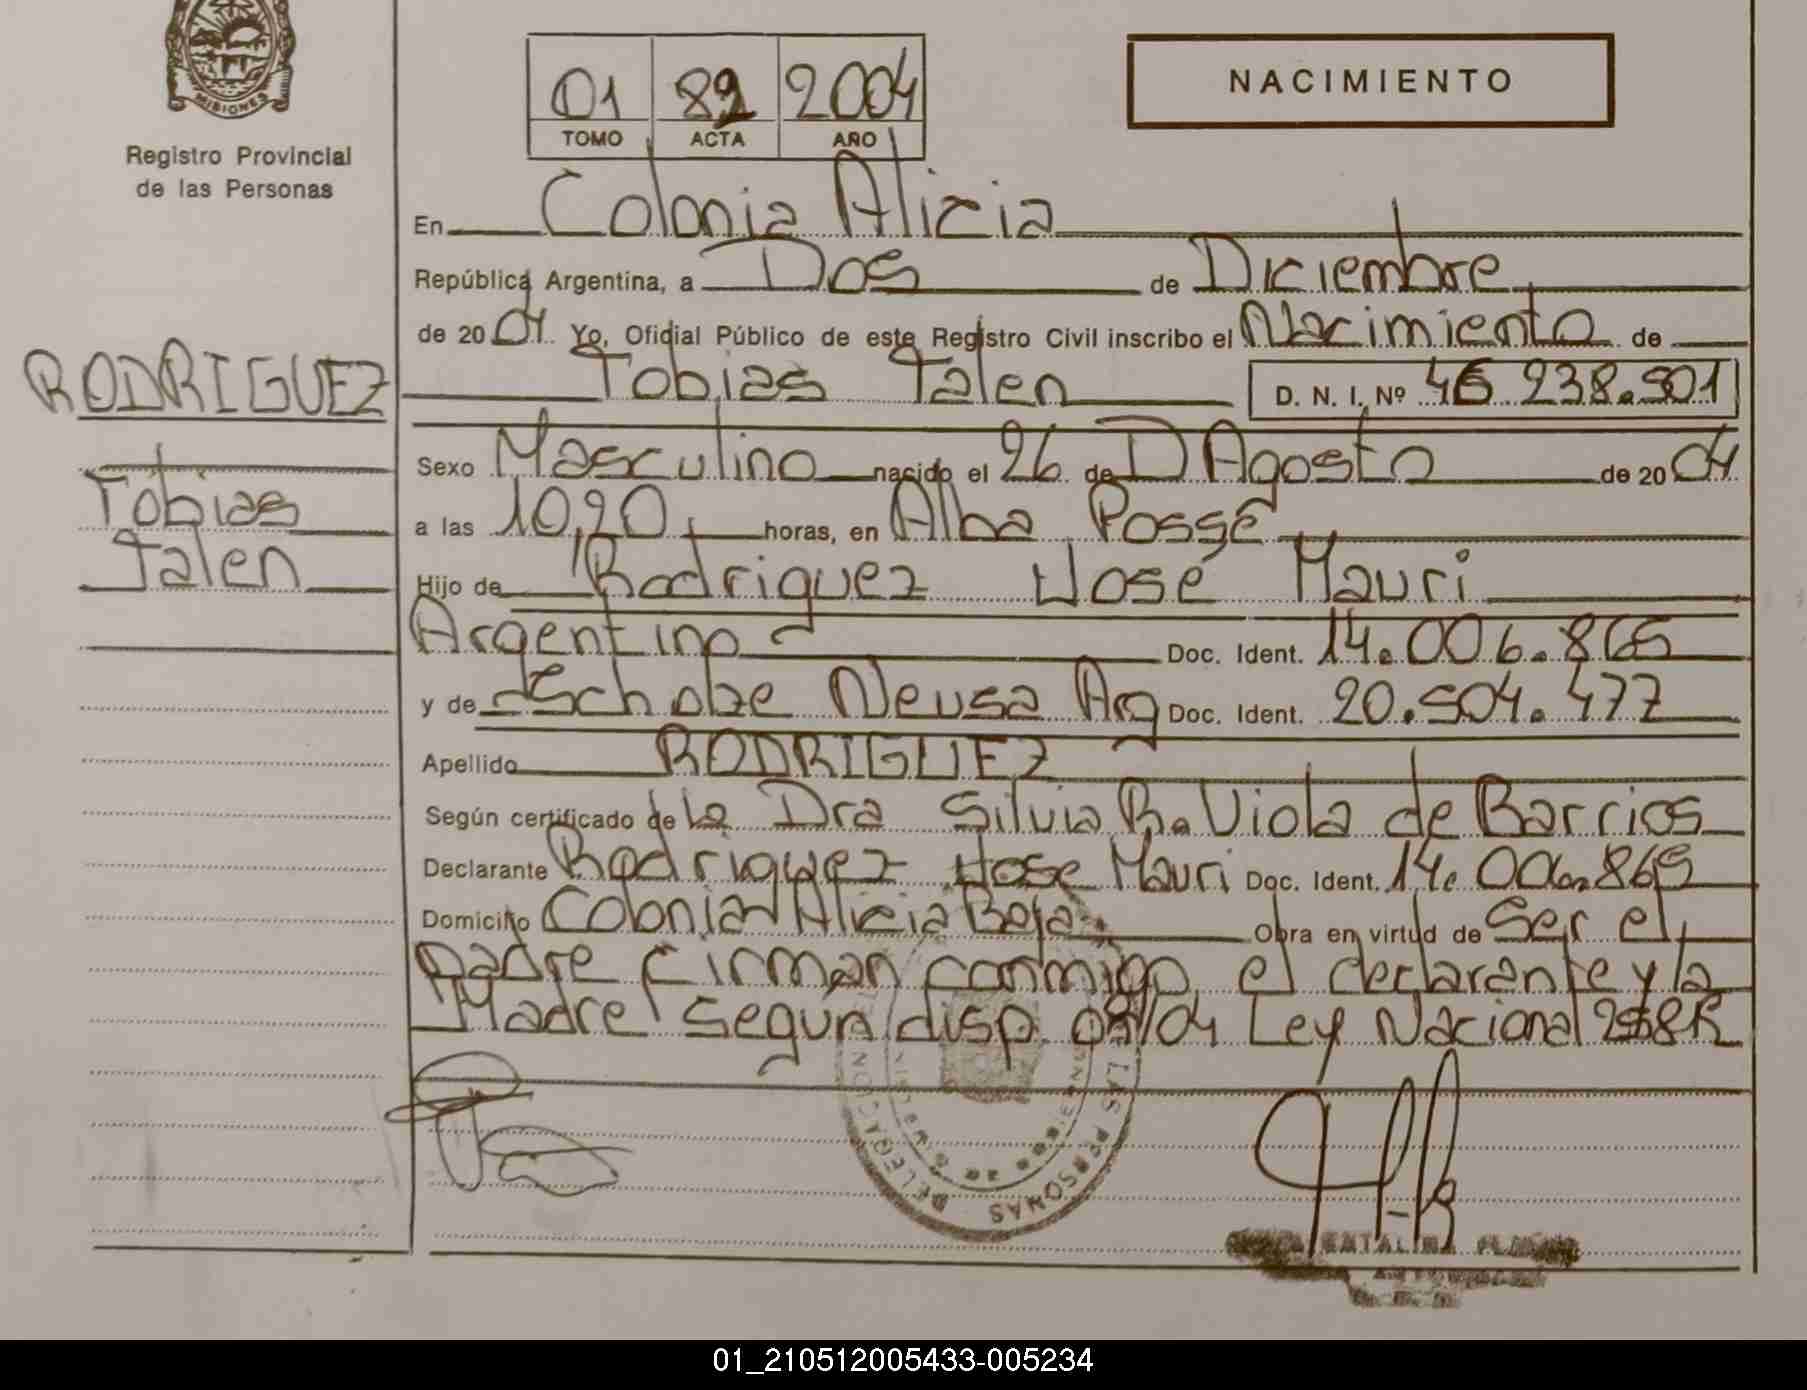 MISIONES
Registro Provincial
de las Personas
01 82 2004
TOMO ACTA AÑO
NACIMIENTO
En Colonia Alicia
República Argentina, a Dos de Diciembre
de 2004 Yo, Oficial Público de este Registro Civil inscribo el Nacimiento de
Tobias Jalen D. N. I. Nº 46.238.501
Sexo Masculino nacido el 26 de D Agosto de 2004
a las 10,20 horas, en Alba Posse
Hijo de Rodriguez José Mauri
Argentino Doc. Ident. 14.006.865
y de Scholze Neusa Arg Doc. Ident. 20.504.477
Apellido RODRIGUEZ
Según certificado de la Dra Silvia R. Viola de Barrios
Declarante Rodriguez Jose Mauri Doc. Ident. 14.006.865
Domicilio Colonia Alicia Baja Obra en virtud de Ser el
padre firman conmigo el declarante y la
Madre segun disp. /04 Ley Nacional
RODRIGUEZ
Tobias
Jalen
DELEGACION
LAS PERSONAS
01_210512005433-005234